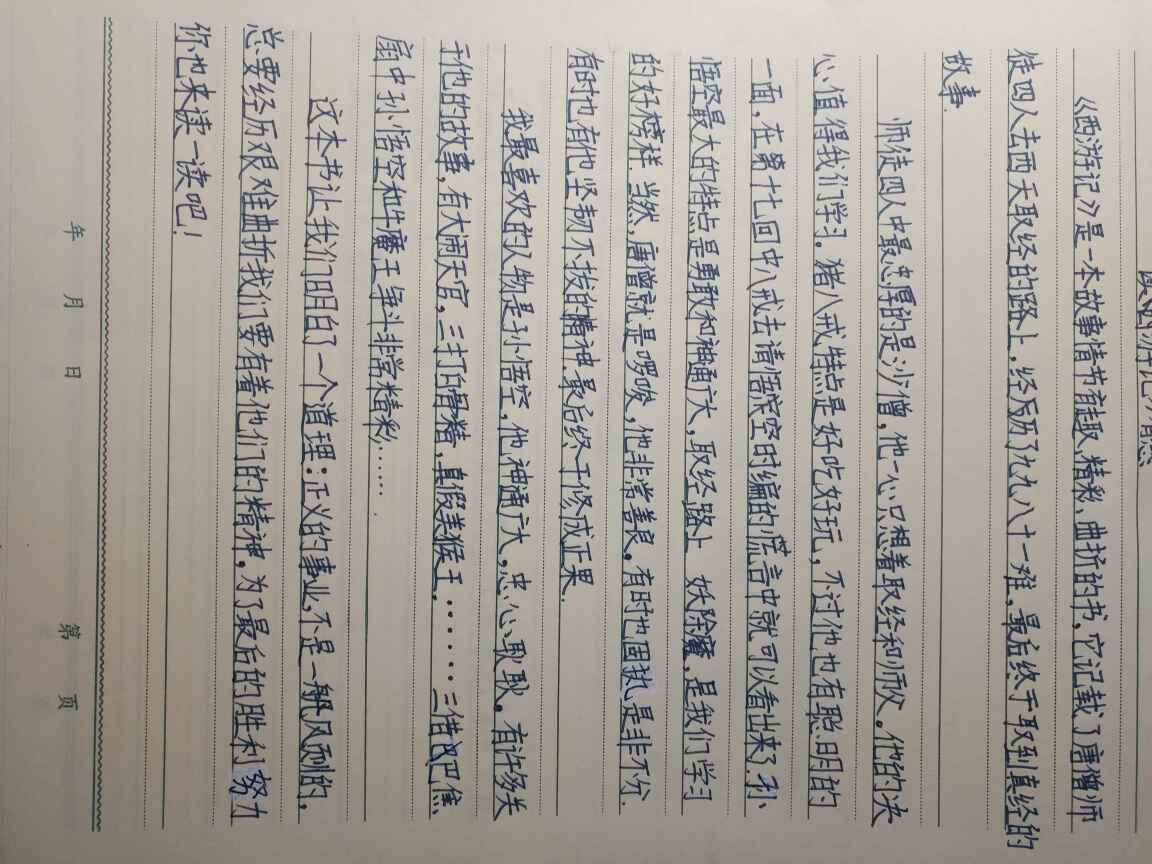 读《西游记》有感
《西游记》是一本故事情节有趣、精彩、曲折的书,它记载了唐僧师
徒四人去西天取经的路上,经历了九九八十一难,最后终于取到真经的
故事.
师徒四人中最忠厚的是沙僧,他一心只想着取经和师父。他的决
心值得我们学习。猪八戒特点是好吃好玩,不过他也有聪明的
一面,在第十七回中八戒去请悟空时编的慌言中就可以看出来了.孙
悟空最大的特点是勇敢和神通广大,取经路上 妖除魔,是我们学习
的好榜样.当然,唐僧就是啰唆,他非常善良。有时也固执,是非不分.
有时也有他坚韧不拔的精神.最后终于修成正果.
我最喜欢的人物是孙悟空,他神通广大,忠心耿耿。有许多关
于他的故事,有大闹天宫,三打白骨精,真假美猴王.……三借芭巴焦
扇中孙悟空和牛魔王争斗非常精彩……
这本书让我们明白了一个道理:正义的事业,不是一帆风顺的,
总要经历艰难曲折我们要有着他们的精神。为了最后的胜利努力
你也来读一读吧!
年 月 日
第 页